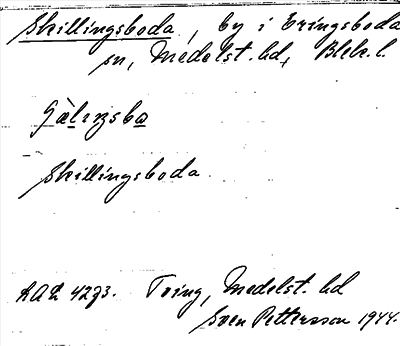 Skillingsboda, by i Eringsboda
sn, Medelst. hd, Blek. l.
Skillingsboda
Tving, Medelst. hd
Sven Pettersson 1944.